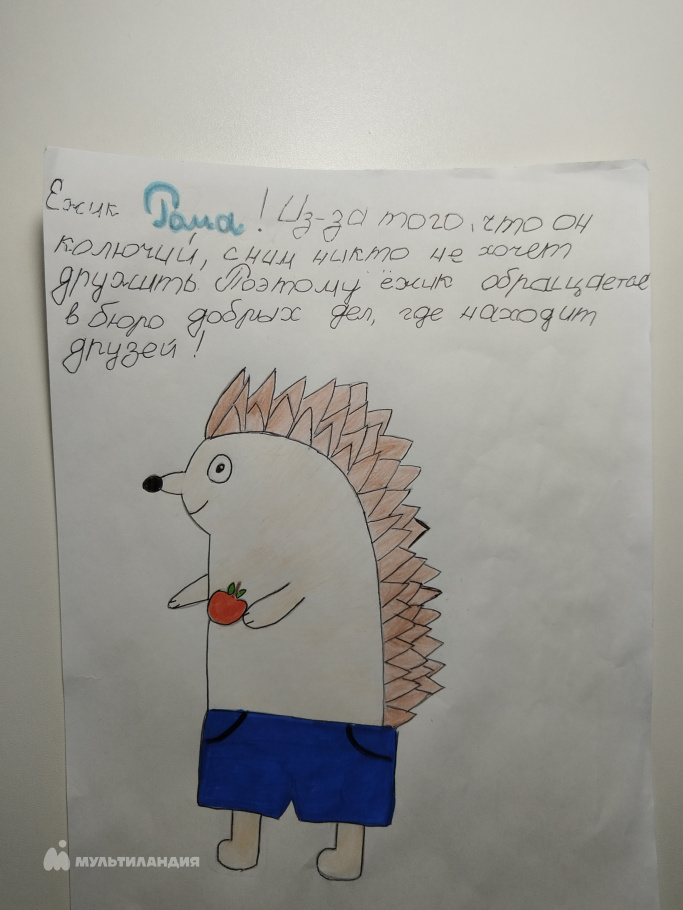 Ежик Рома! Из-за того, что он
колючий, с ним никто не хочет
дружить. Поэтому ёжик обращается
в бюро добрых дел, где находит
друзей!
МУЛЬТИЛАНДИЯ